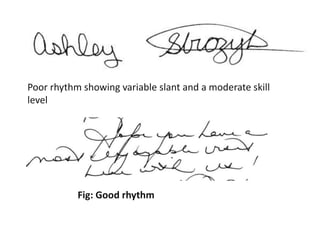 Ashley
Poor rhythm showing variable slant and a moderate skill
level
Hope you have a
most enjoyable visit
here with us!
Fig: Good rhythm